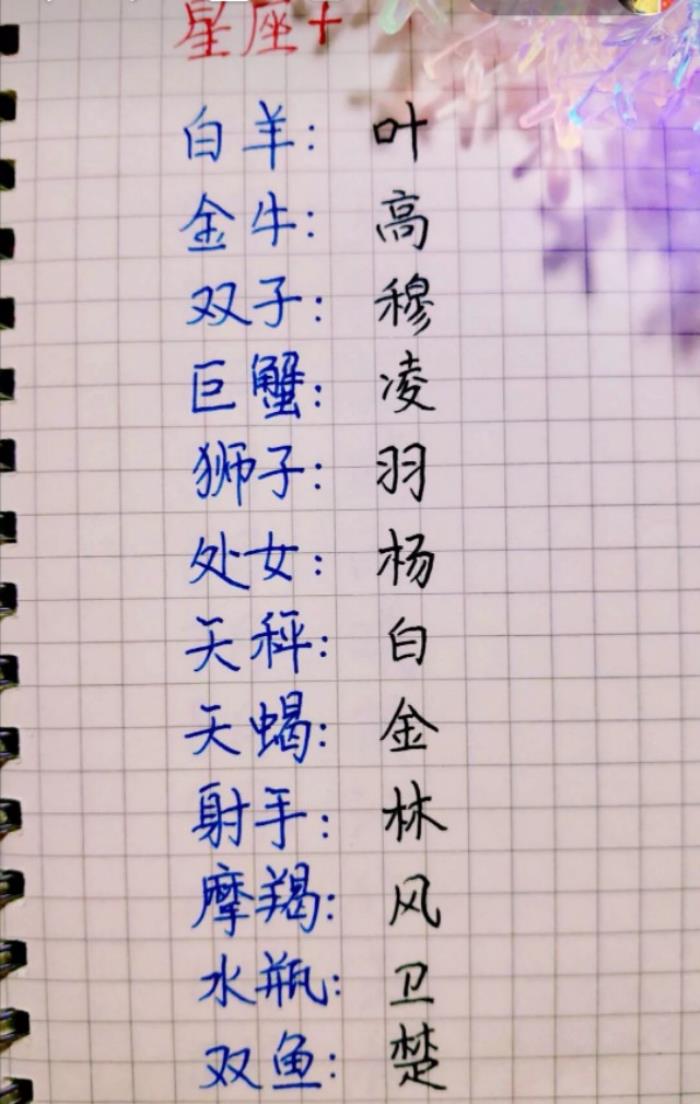 星座+
白羊: 叶
金牛: 高
双子: 穆
巨蟹: 凌
狮子: 羽
处女: 杨
天秤: 白
天蝎: 金
射手: 林
摩羯: 风
水瓶: 卫
双鱼: 楚